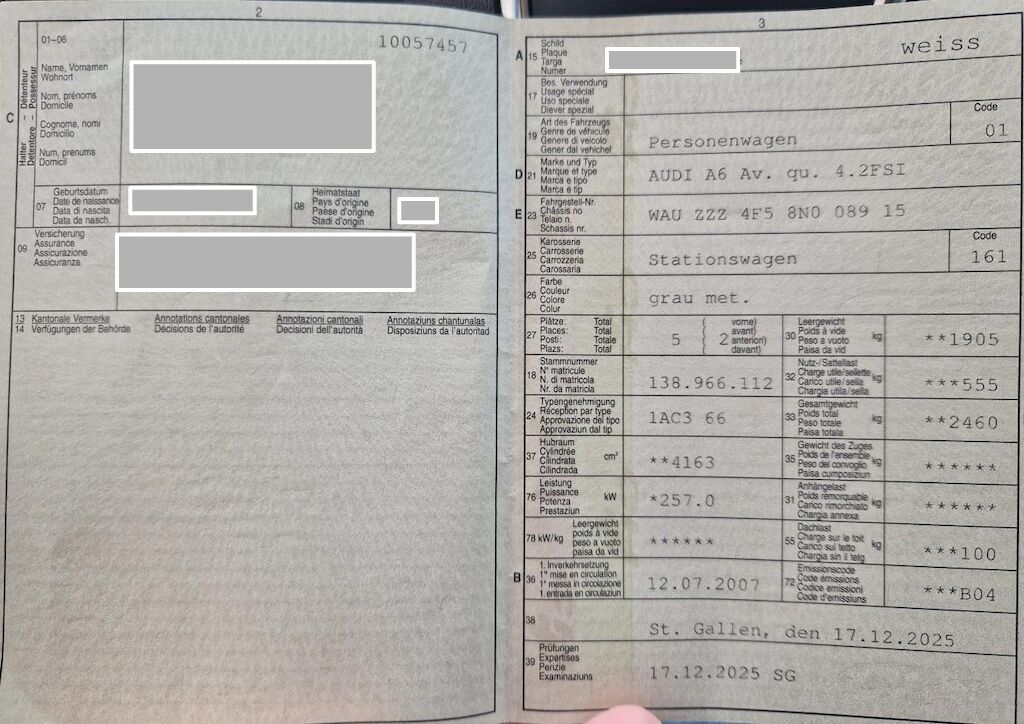 2
01-06
10057457
C
Halter – Détenteur
Detentore – Possessur
Name, Vornamen
Wohnort
Nom, prénoms
Domicile
Cognome, nomi
Domicilio
Num, prenums
Domicil
07
Geburtsdatum
Date de naissance
Data di nascita
Data da nasch.
08
Heimatstaat
Pays d'origine
Paese d'origine
Stadi d'origin
09
Versicherung
Assurance
Assicurazione
Assicuranza
13 Kantonale Vermerke Annotations cantonales Annotazioni cantonali Annotaziuns chantunalas
14 Verfügungen der Behörde Décisions de l'autorité Decisioni dell'autorità Disposiziuns da l'autoritad
3
A 15
Schild
Plaque
Targa
Numer
weiss
17
Bes. Verwendung
Usage spécial
Uso speciale
Diever spezial
19
Art des Fahrzeugs
Genre de véhicule
Genere di veicolo
Gener dal vehichel
Personenwagen
Code
01
D 21
Marke und Typ
Marque et type
Marca e tipo
Marca e tip
AUDI A6 Av. qu. 4.2FSI
E 23
Fahrgestell-Nr.
Châssis no
Telaio n.
Schassis nr.
WAU ZZZ 4F5 8N0 089 15
25
Karosserie
Carrosserie
Carrozzeria
Carossaria
Stationswagen
Code
161
26
Farbe
Couleur
Colore
Colur
grau met.
27
Plätze: Total
Places: Total
Posti: Totale
Plazs: Total
5
2
vorne)
avant)
anteriori)
davant)
30
Leergewicht
Poids à vide
Peso a vuoto
Paisa da vid
kg
**1905
18
Stammnummer
N° matricule
N. di matricola
Nr. da matricla
138.966.112
32
Nutz-/Sattellast
Charge utile/sellette
Carico utile/sella
Chargia utila/sella
kg
***555
24
Typengenehmigung
Réception par type
Approvazione del tipo
Approvaziun dal tip
1AC3 66
33
Gesamtgewicht
Poids total
Peso totale
Paisa totala
kg
**2460
37
Hubraum
Cylindrée
Cilindrata
Cilindrada
cm³
**4163
35
Gewicht des Zuges
Poids de l'ensemble
Peso del convoglio
Paisa cumposiziun
kg
******
76
Leistung
Puissance
Potenza
Prestaziun
kW
*257.0
31
Anhängelast
Poids remorquable
Carico rimorchiato
Chargia annexa
kg
******
78 kW/kg
Leergewicht
poids à vide
peso a vuoto
paisa da vid
******
55
Dachlast
Charge sur le toit
Carico sul tetto
Chargia sin il tetg
kg
***100
B 36
1. Inverkehrsetzung
1re mise en circulation
1a messa in circolazione
1. entrada en circulaziun
12.07.2007
72
Emissionscode
Code émissions
Codice emissioni
Code d'emissiuns
***B04
38
St. Gallen, den 17.12.2025
39
Prüfungen
Expertises
Perizie
Examinaziuns
17.12.2025 SG